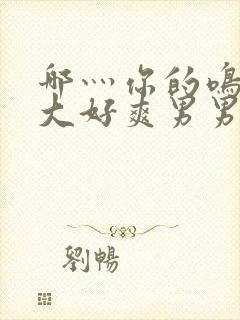 哪灬你的鳴
大好爽男男
劉暢